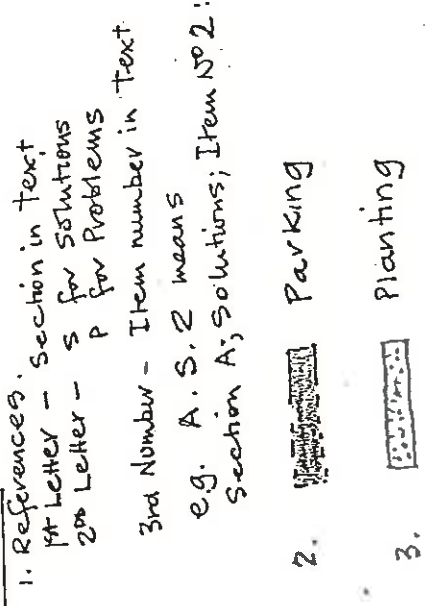 1. References.
1st Letter - Section in text
2nd Letter - S for Solutions
P for Problems
3rd Number - Item number in text
e.g. A.S.2 means
Section A; Solutions; Item No 2.
2. Parking
3. Planting